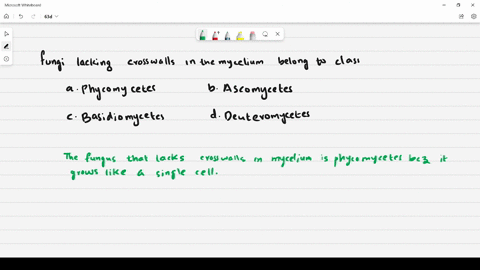 Microsoft Whiteboard
63d
fungi lacking crosswalls in the mycelium belong to class
a. Phycomycetes b. Ascomycetes
c. Basidiomycetes d. Deuteromycetes
The fungus that lacks crosswalls in mycelium is phycomycetes bcz it
grows like a single cell.